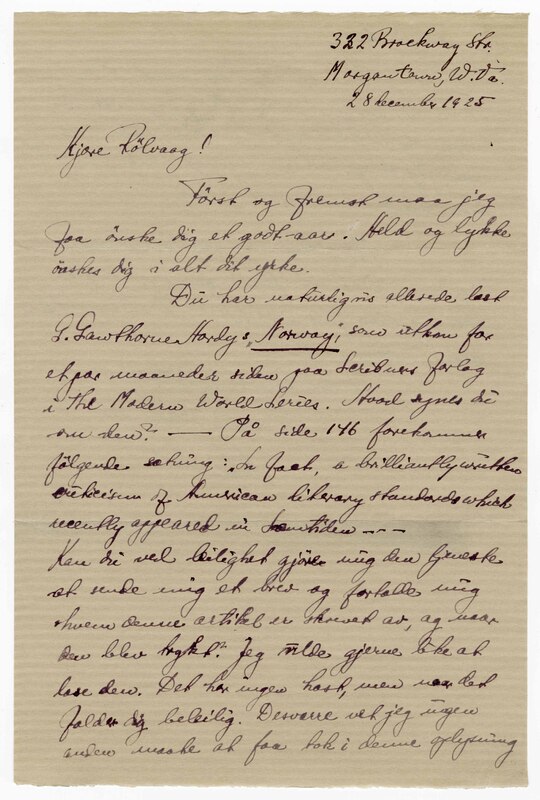 332 Brockway Str.
Morgantown, W. Va.
28 december 1925
Kjære Rölvaag!
Först og fremst maa jeg
faa önske dig et godt aar. Held og lykke
önskes dig i alt dit yrke.
Du har naturligvis allerede læst
G. Gawthorne Hardys "Norway", som utkom for
et par maaneder siden paa Scribners Forlag
i The Modern World Series. Hvad synes du
om den? — På side 146 forekommer
fölgende sætning: In fact, a brilliantly written
criticism of American literary standards which
recently appeared in Samtiden ---
Kan du ved leilighet gjöre mig den tjeneste
at sende mig et brev og fortælle mig
hvem denne artikel er skrevet av, og naar
den blev trykt? Jeg vilde gjerne like at
læse den. Det har ingen hast, men naar det
falder dig beleilig. Desværre vet jeg ingen
anden maate at faa tak i denne oplysning